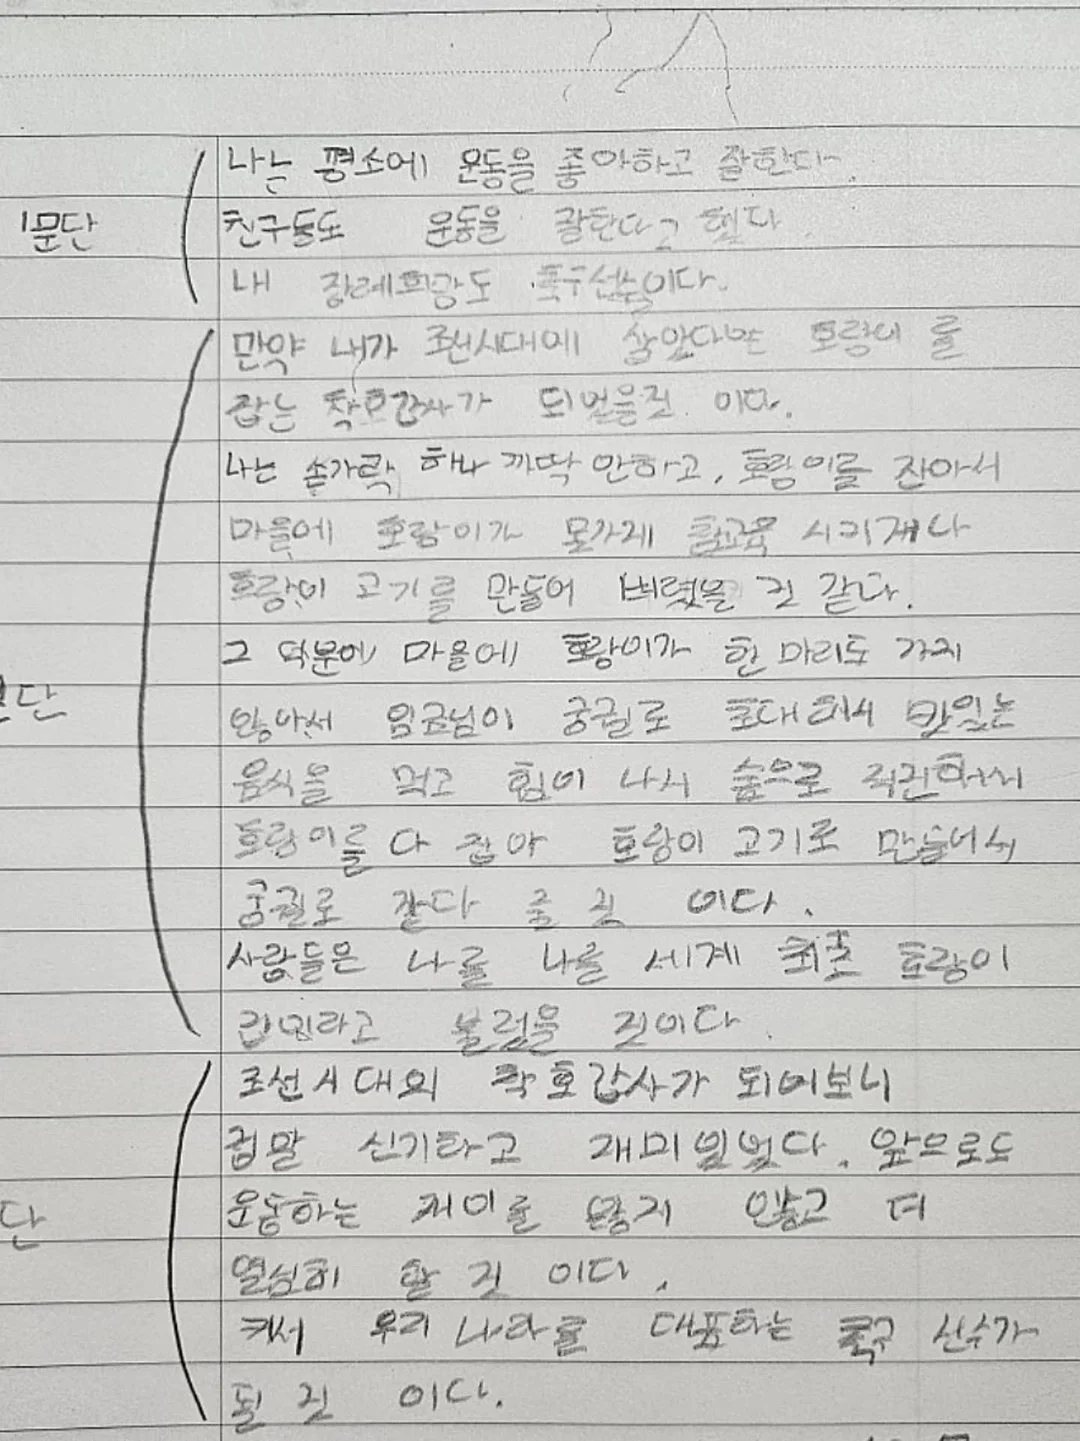 나는 평소에 운동을 좋아하고 잘한다.
1문단
친구들도 운동을 잘한다고 했다.
내 장레희망도 축구선수이다.
만약 내가 조선시대에 살았다면 호랑이 를
잡는 착호갑사가 되었을것 이다.
나는 손가락 하나 까딱 안하고, 호랑이를 잔아서
마을에 호랑이가 못가게 훈교육 시키거나
호랑이 고기를 만들어 버렸을 것 같다.
그 덕분에 마을에 호랑이가 한 마리도 가지
단
않아서 임금님이 궁궐로 초대해서 맛있는
음식을 먹고 힘이 나서 숲으로 직진해서
호랑이를 다 잡아 호랑이 고기로 만들어서
궁궐로 갖다 줄 것 이다.
사람들은 나를 나를 세계 최초 호랑이
헌터라고 불렀을 것이다.
조선시대의 착호갑사가 되어보니
정말 신기하고 재미있었다. 앞으로도
단
운동하는 재미를 잃지 않고 더
열심히 할 것 이다.
커서 우리 나라를 대표하는 축구 선수가
될 것 이다.